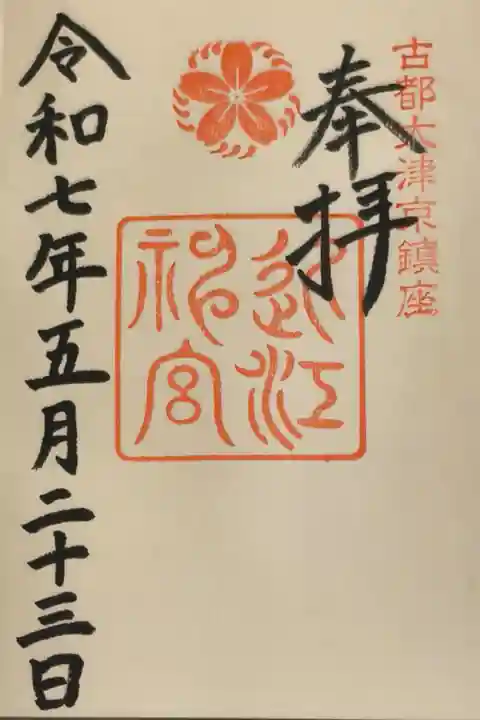 古都大津京鎮座
奉拝
近江神宮
令和七年五月二十三日